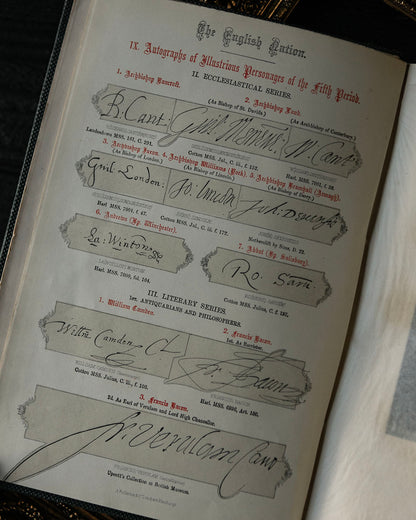 The English Nation.
IX. Autographs of Illustrious Personages of the Fifth Period.
II. ECCLESIASTICAL SERIES.
1. Archbishop Bancroft.
2. Archbishop Laud.
(As Bishop of St. Davids.)
(As Archbishop of Canterbury.)
R. Cant:
Guil: Meneven:
W: Cant:
Lansdowne MSS. 161, C. 291.
Cotton MSS. Jul., C. iii., f. 152.
Harl. MSS. 7001, f. 38.
3. Archbishop
4. Archbishop Williams (York.)
5. Archbishop Bramhall (Armagh),
(As Bishop of London.)
(As Bishop of Lincoln.)
(As Bishop of Derry.)
Guil: London:
Jo. Lincoln
Harl. MSS. 7001, f. 47.
Cotton MSS. Jul., C. iii., f. 172.
6. Andrews (Bp. Winchester).
7. Abbot (Bp. Salisbury).
La: Winton
Ro: Sarum
Harl. MSS. 7000, fol. 104.
Cotton MSS. Julius, C. f. 191.
III. LITERARY SERIES.
1ST. ANTIQUARIANS AND PHILOSOPHERS.
1. William Camden.
2. Francis Bacon.
1st. As Barrister.
Willm Camden
Fr. Bacon
WILLIAM CAMDEN
FRANCIS BACON
Cotton MSS. Julius, C. iii., f. 105.
Harl. MSS. 6996, Art. 586.
3. Francis Bacon.
2d. As Earl of Verulam and Lord High Chancellor.
Fr. Verulam Canc
Upcott's Collection at British Museum.